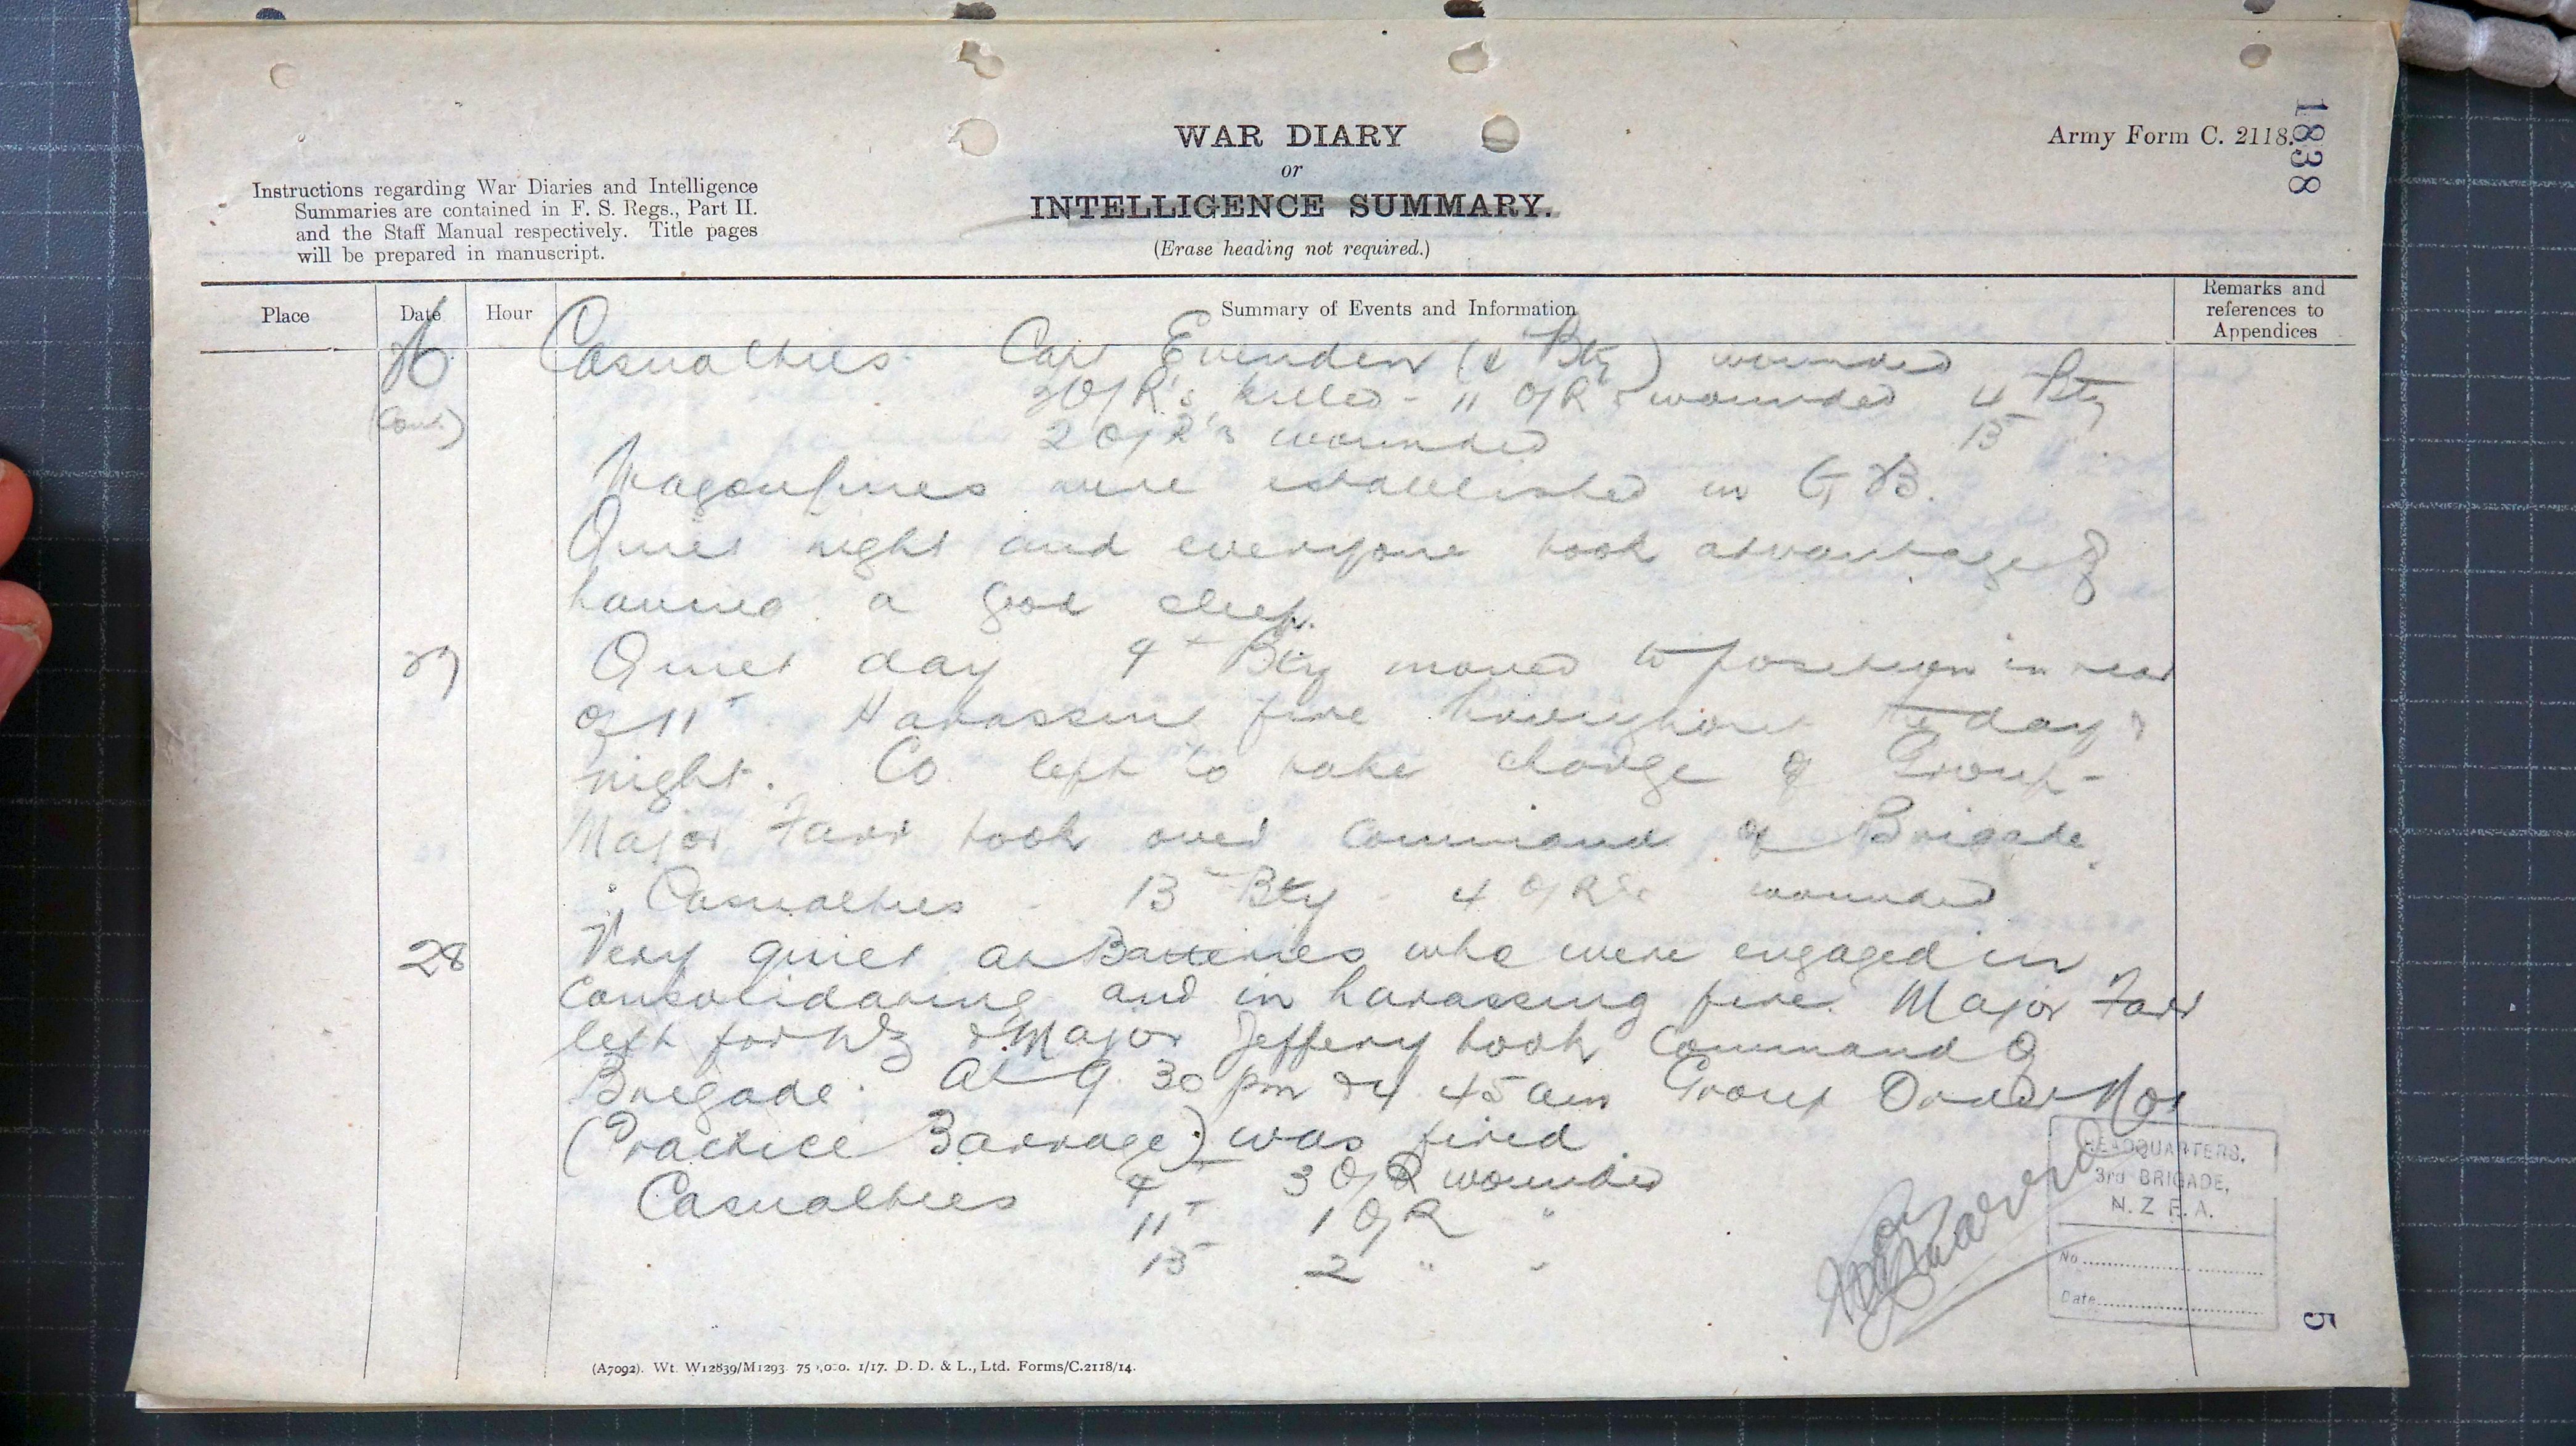 1838
Army Form C. 2118.
WAR DIARY
or
INTELLIGENCE SUMMARY.
(Erase heading not required.)
Instructions regarding War Diaries and Intelligence
Summaries are contained in F. S. Regs., Part II.
and the Staff Manual respectively. Title pages
will be prepared in manuscript.
Place Date Hour Summary of Events and Information Remarks and references to Appendices
26 Casualties. Capt Evenden (4 Bty) wounded
(Cont.) O/R's killed - 11 O/R's wounded 4 Bty
2 O/R's wounded 13
Wagonlines were established in G 23.
Quiet night and everyone took advantage of
having a good sleep.
27 Quiet day 4th Bty moved to position in rear
of 11th Harassing fire throughout the day &
night. CO left to take charge of Group -
Major Farr took over command of Brigade.
Casualties 13th Bty - 4 O/R's wounded
28 Very quiet at Batteries who were engaged in
consolidating and in harassing fire. Major Farr
left for NZ & Major Jeffery took Command of
Brigade. At 9.30 pm & 4.45 am Group Order No 1
(Practice Barrage) was fired
Casualties 4th 3 O/R wounded
11th 1 O/R "
13 2 " "
HEADQUARTERS,
3rd BRIGADE,
N.Z.F.A.
No
Date
5
(A7092). Wt. W12839/M1293. 1/17. D. D. & L., Ltd. Forms/C.2118/14.